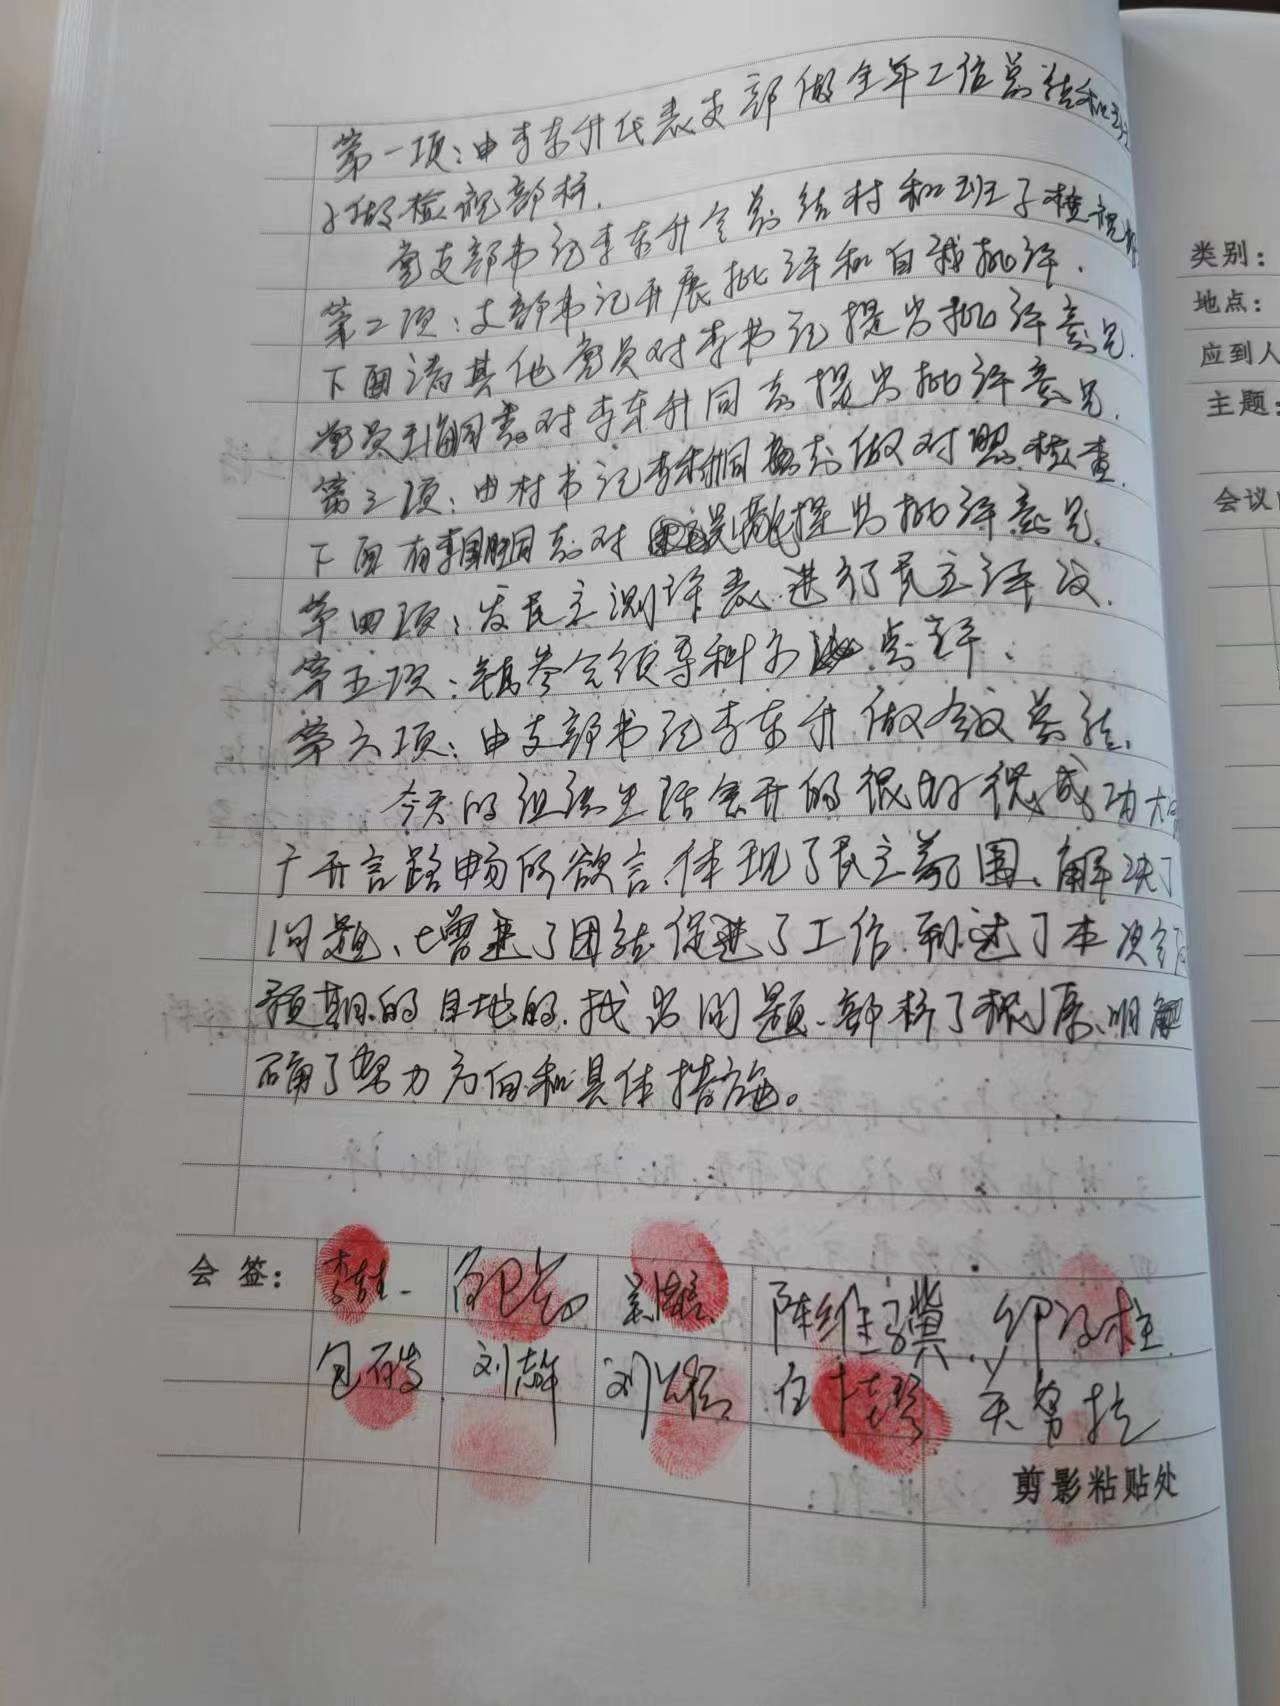 第一项：由李东升代表支部做全年工作总结和班
子做检视部析.
党支部书记李东升全总结村和班子检视部
第二项：支部书记开展批评和自我批评.
下面请其他党员对李书记提出批评意见.
党员对李东升同志提出批评意见.
第三项：由村书记李东升同志做对照检查.
下面有李国胜同志对提出批评意见.
第四项：发民主测评表.进行民主评议.
第五项：镇参会领导科点评.
第六项：由支部书记李东升做会议总结.
今天的组织生活会开的很好很成功大家
广开言路畅所欲言.体现了民主氛围、解决了
问题、增进了团结促进了工作.到达了本次
预期的目地的.找出问题.部析了根原.明
确了努力方向和具体措施。
会签：
陈维骥
包 刘辉 刘 任
剪影粘贴处
类别：
地点：
应到人
主题：
会议